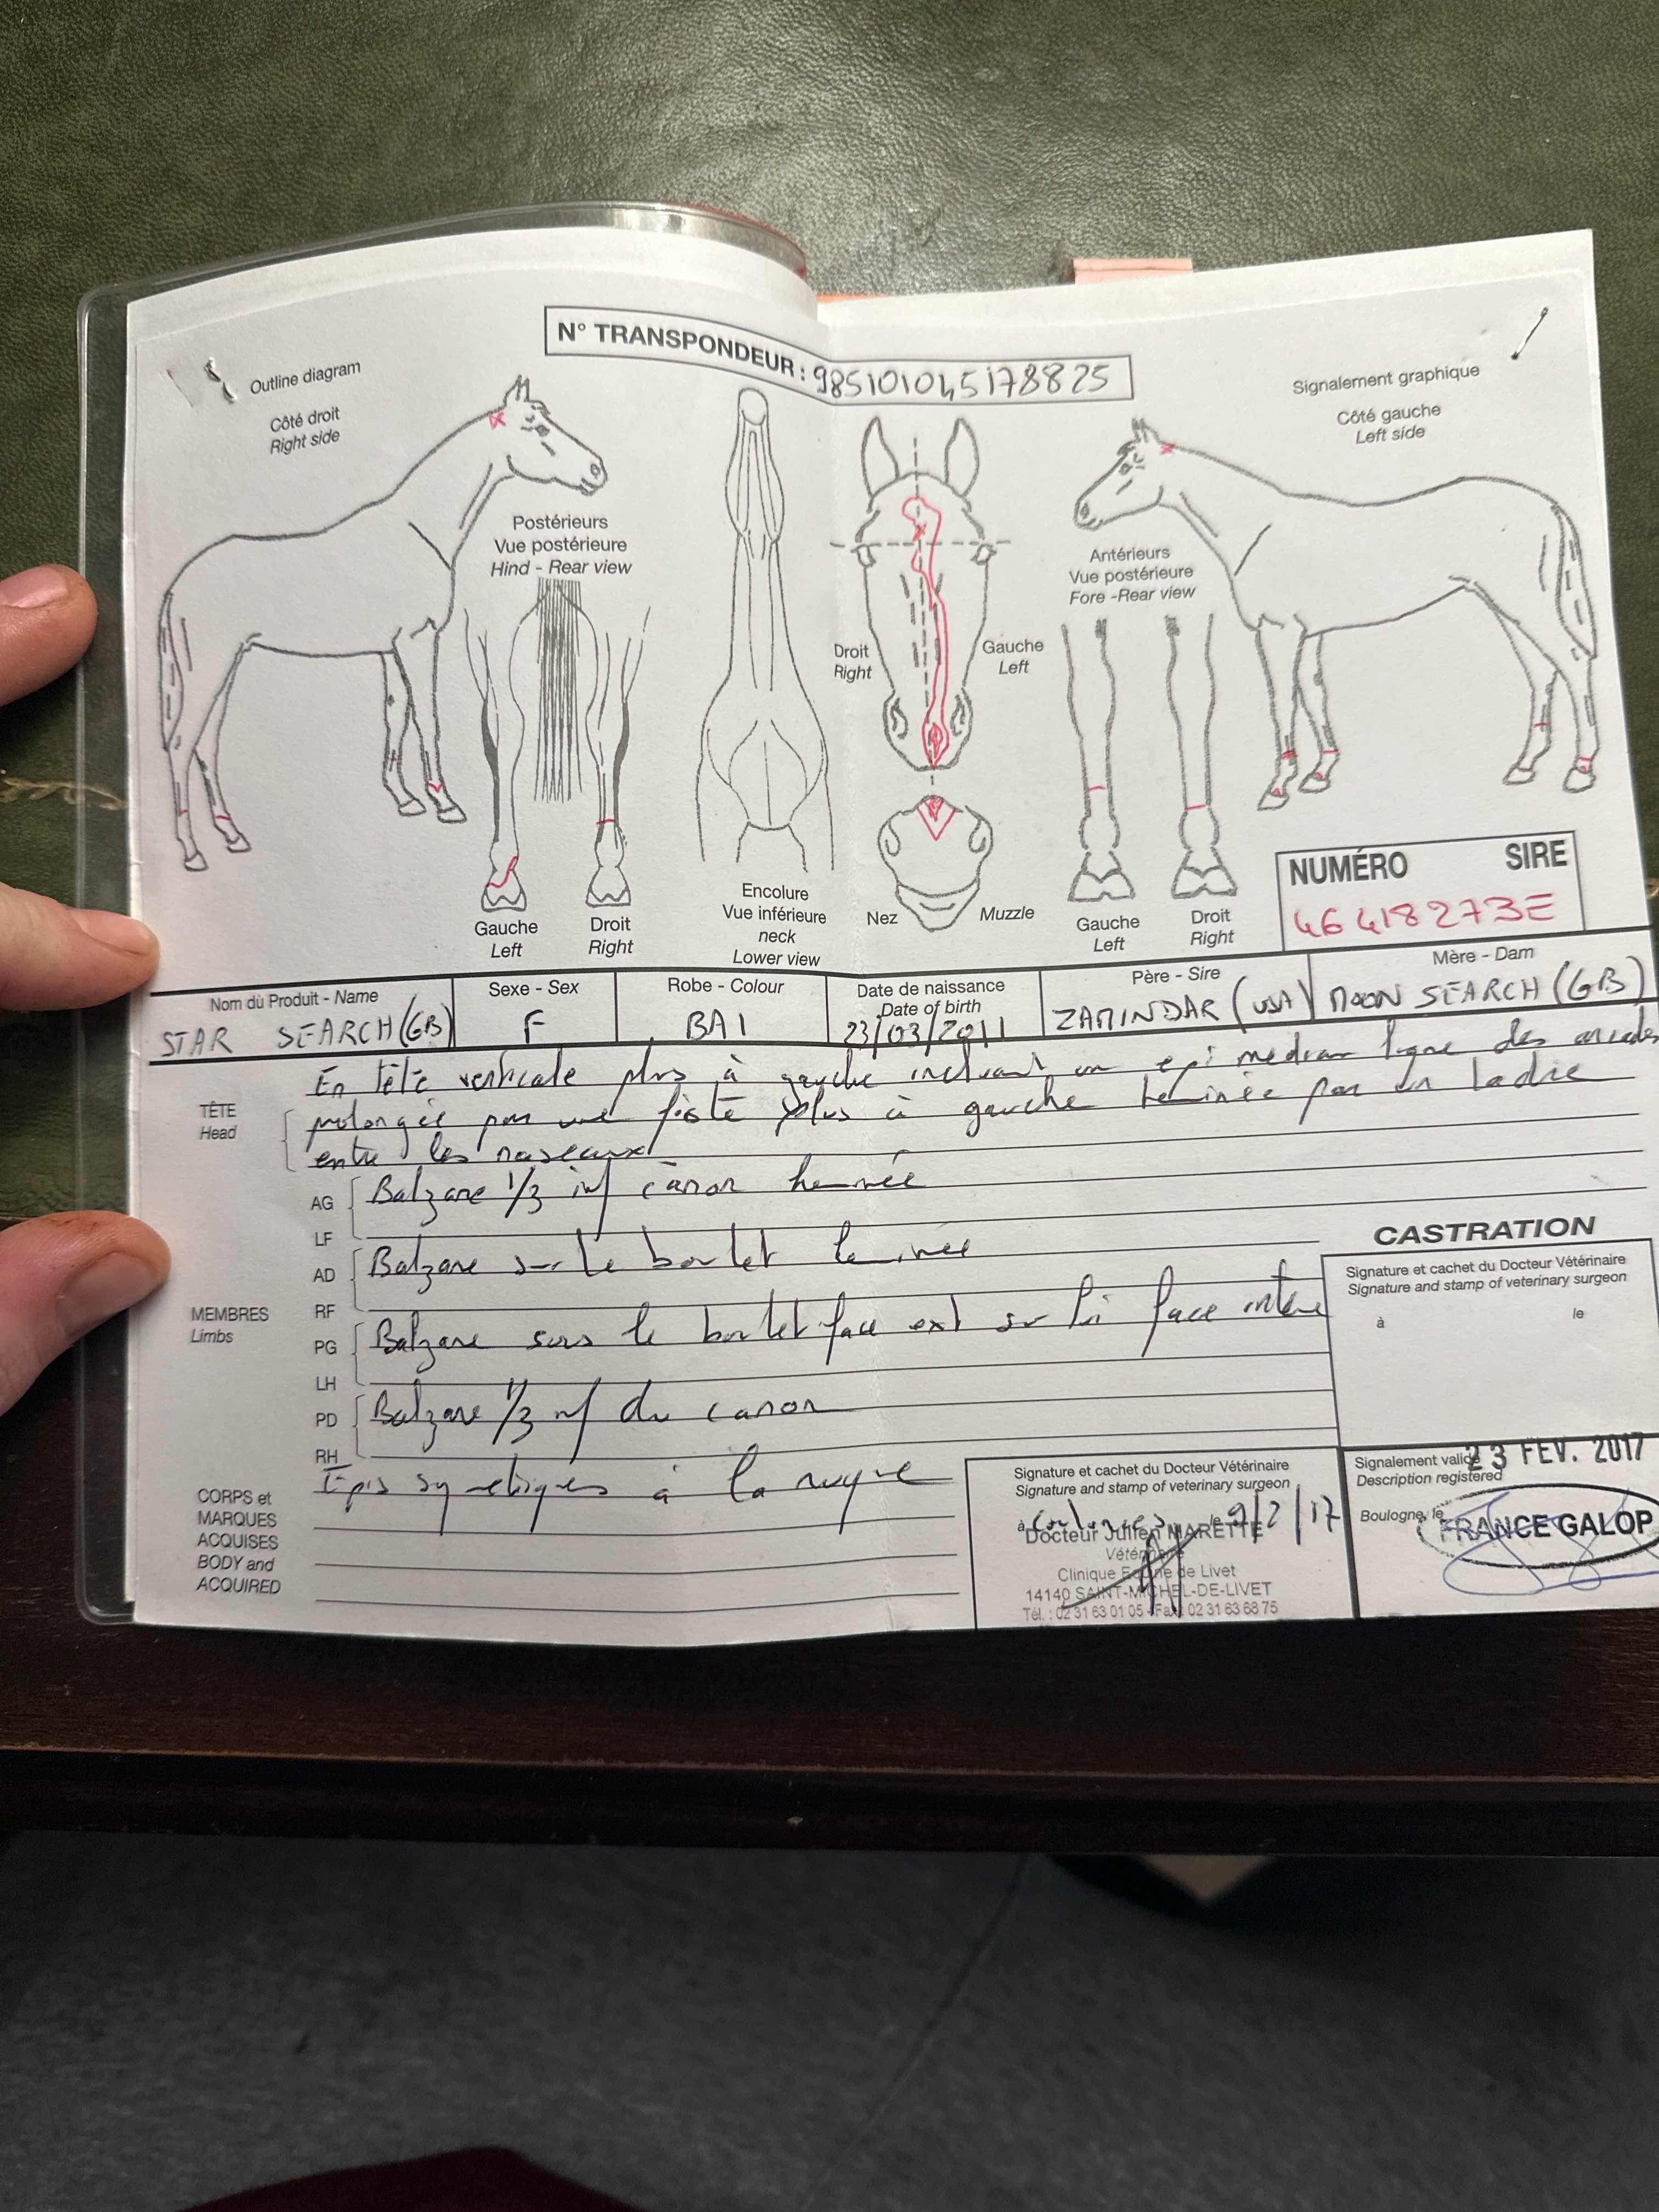 N° TRANSPONDEUR : 985101045178825
Outline diagram
Côté droit
Right side
Signalement graphique
Côté gauche
Left side
Postérieurs
Vue postérieure
Hind - Rear view
Antérieurs
Vue postérieure
Fore -Rear view
Droit
Right
Gauche
Left
Gauche
Left
Droit
Right
Encolure
Vue inférieure
neck
Lower view
Nez
Muzzle
Gauche
Left
Droit
Right
NUMÉRO SIRE
46418273E
Nom du Produit - Name
STAR SEARCH (GB)
Sexe - Sex
F
Robe - Colour
BAI
Date de naissance
Date of birth
23/03/2011
Père - Sire
ZAMINDAR (USA)
Mère - Dam
MOON SEARCH (GB)
TÊTE
Head
En tête verticale plus à gauche incluant un epi median ligne des arcades
prolongée par une liste plus à gauche terminée par un ladre
entre les naseaux
MEMBRES
Limbs
AG
LF
Balzane 1/3 inf canon
AD
RF
Balzane sur le boulet
PG
LH
Balzane sous le boulet face ext sur lui face interne
PD
RH
Balzane 1/3 inf du canon
CORPS et
MARQUES
ACQUISES
BODY and
ACQUIRED
Epis symetriques à la nuque
CASTRATION
Signature et cachet du Docteur Vétérinaire
Signature and stamp of veterinary surgeon
à le
Signature et cachet du Docteur Vétérinaire
Signature and stamp of veterinary surgeon
à le 9/2/17
Docteur Julien MARETTE
Vétérinaire
Clinique Equine de Livet
14140 SAINT-MICHEL-DE-LIVET
Tél. : 02 31 63 01 05 - Fax : 02 31 63 68 75
Signalement validé
Description registered
23 FEV. 2017
Boulogne, le
FRANCE GALOP